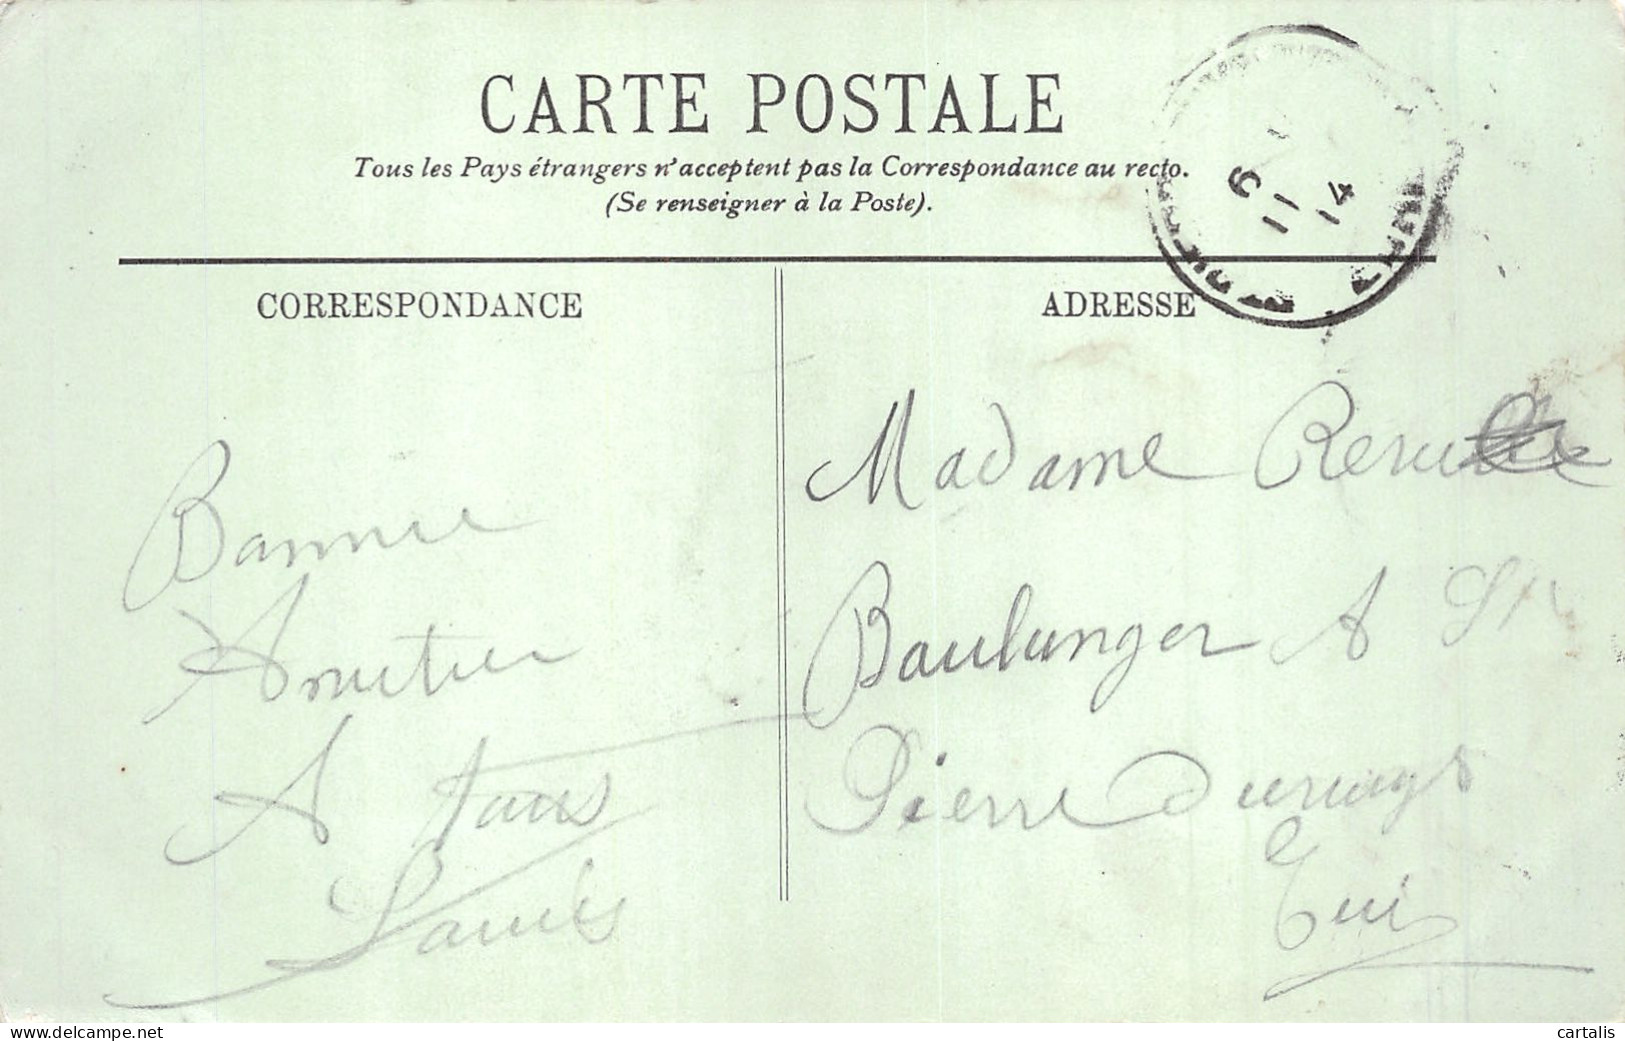 CARTE POSTALE
Tous les Pays étrangers n'acceptent pas la Correspondance au recto.
(Se renseigner à la Poste).
6
11
14
CORRESPONDANCE
ADRESSE
Bannie
Amitier
A taus
Lauis
Madame
Baulanger A St
Pierre
cartalis